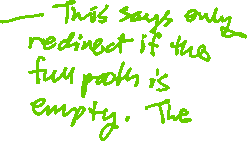 — This says only
redirect if the
full path is
empty. The